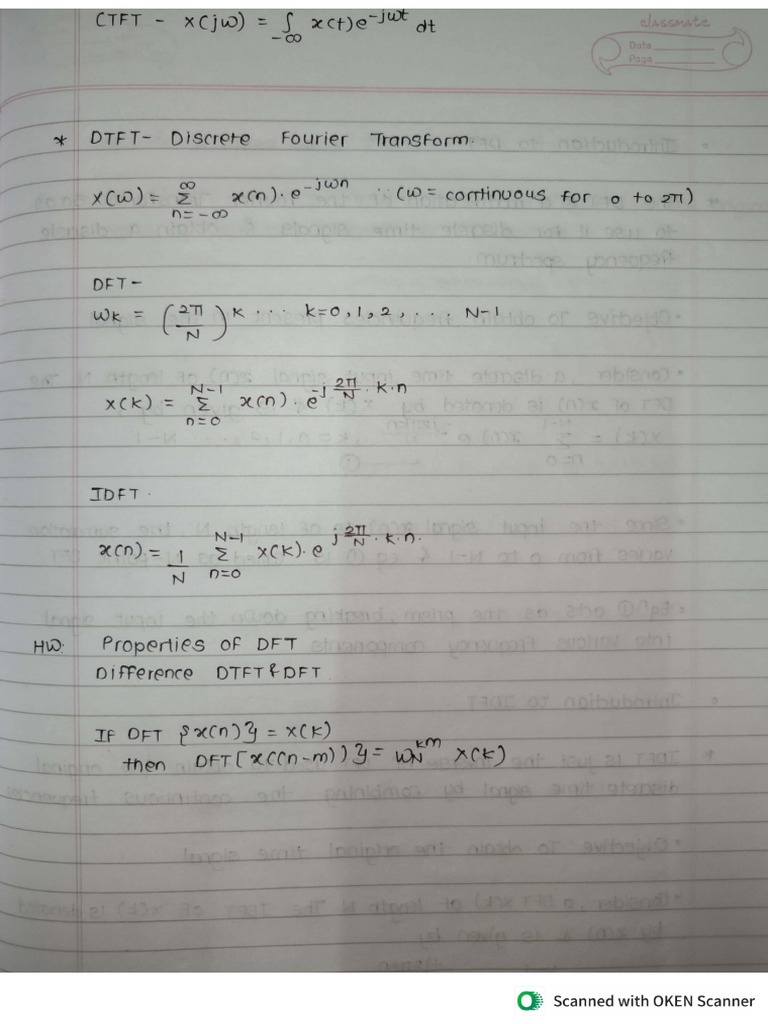 CTFT - X(jω) = ∫ x(t)e^-jωt dt
-∞
classmate
Date
Page
* DTFT- Discrete Fourier Transform.
X(ω) = ∞ Σ n=-∞ x(n)·e^-jωn ∵ (ω = continuous for 0 to 2π)
DFT-
ωk = (2π/N) k ... k=0,1,2,... N-1
X(k) = N-1 Σ n=0 x(n)·e^-j 2π/N ·k·n
IDFT.
x(n) = 1/N N-1 Σ n=0 X(k)·e^j 2π/N ·k·n.
HW: Properties of DFT
Difference DTFT & DFT
If DFT {x(n)} = X(k)
then DFT[x((n-m))} = WN^km X(k)
Scanned with OKEN Scanner